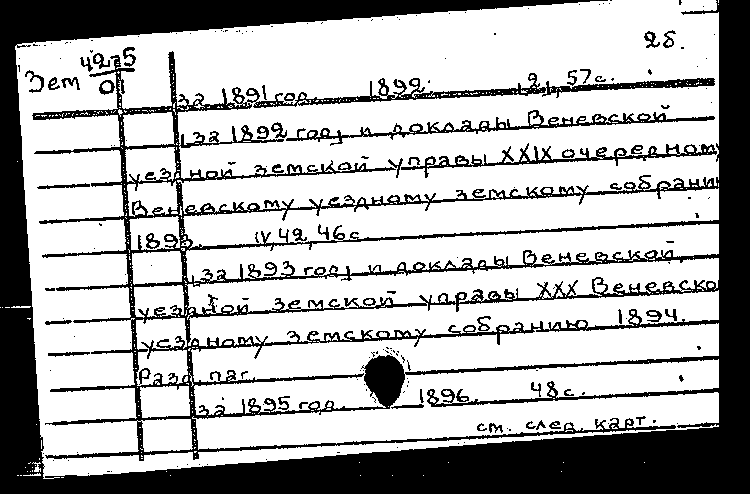 2б.
Зем 4275/01
за 1891 год. 1892. 2, 57с.
за 1892 год, и доклады Веневской
уездной земской управы XXIX очередному
Веневскому уездному земскому собранию
1893. IV, 42, 46с
за 1893 год, и доклады Веневской
уездной земской управы XXX Веневско
уездному земскому собранию 1894.
Разд. паг.
за 1895 год. 1896. 48с.
см. след. карт.